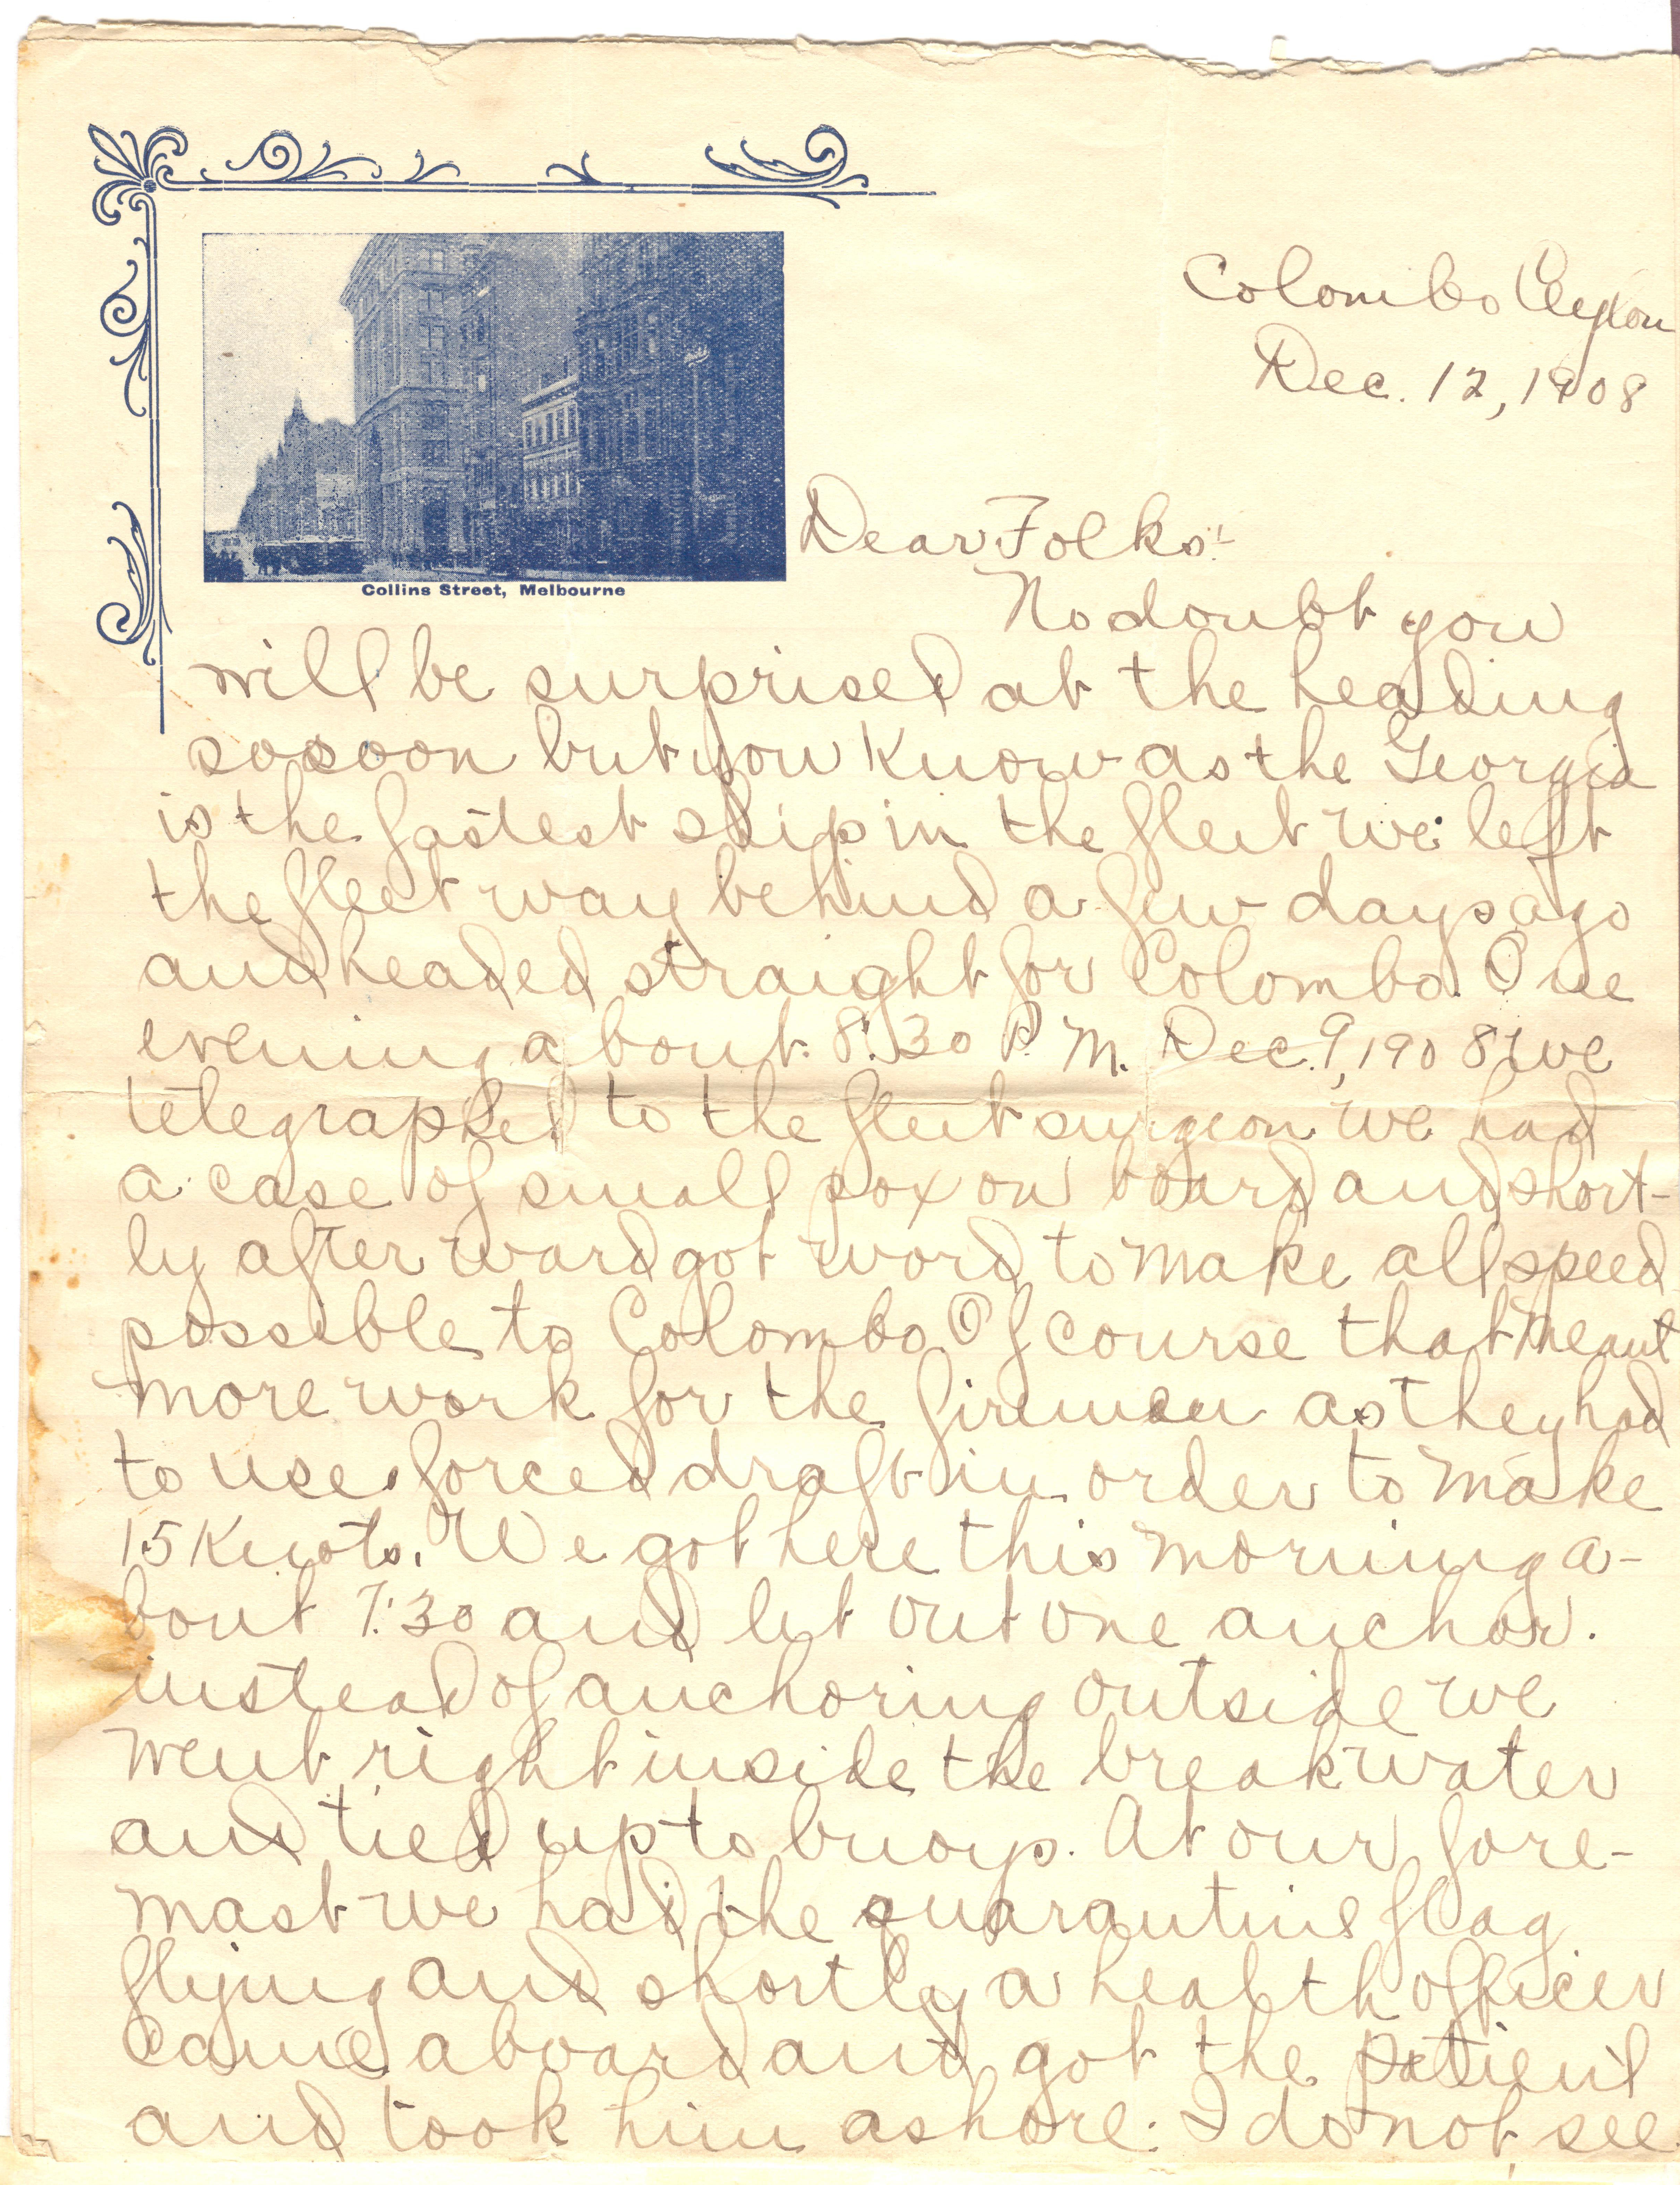 Colombo Ceylon
Dec. 12, 1908
Collins Street, Melbourne
Dear Folks:-
No doubt you
will be surprised at the heading
so soon but you know as the Georgia
is the fastest ship in the fleet we left
the fleet way behind a few days ago
and headed straight for Colombo. One
evening about 8:30 P.M. Dec. 9, 1908 we
telegraphed to the fleet surgeon we had
a case of small pox on board and short-
ly after ward got word to make all speed
possible to Colombo. Of course that meant
more work for the firemen as they had
to use forced draft in order to make
15 Knots. We got here this morning a-
bout 7:30 and let out one anchor.
instead of anchoring outside we
went right inside the breakwater
and tied up to buoys. At our fore-
mast we had the quarantine flag
flying and shortly a health officer
came aboard and got the patient
and took him ashore. I do not see